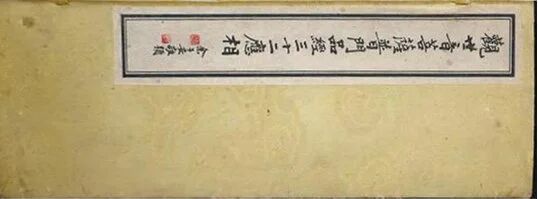 觀世音菩薩普門品經三十二應相